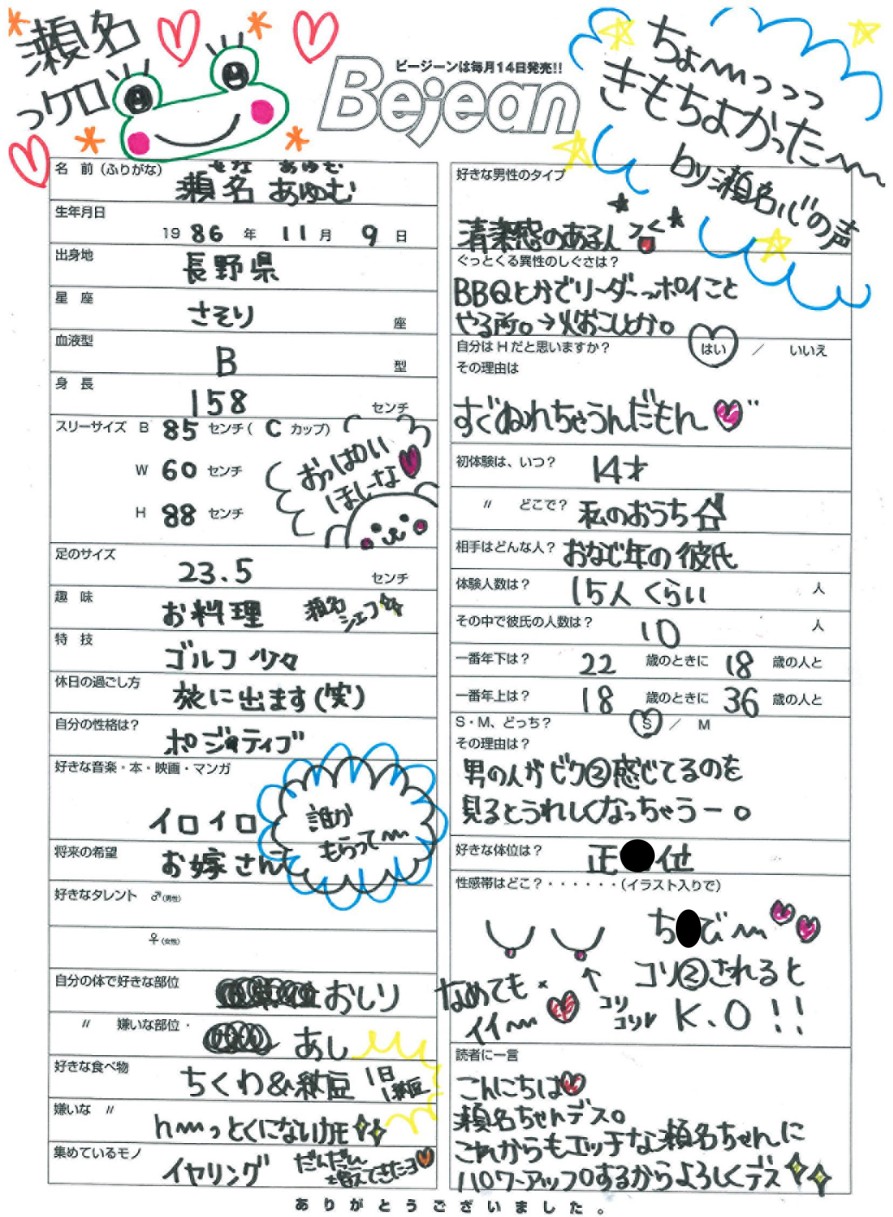 瀬名
っケロ
ビージーンは毎月14日発売!!
Bejean
ちょ〜っっっ
きもちよかった〜
by瀬名心の声
名 前（ふりがな）
せな あゆむ
瀬名 あゆむ
生年月日
1986年 11月 9日
出身地
長野県
星 座
さそり 座
血液型
B 型
身 長
158 センチ
スリーサイズ B 85 センチ( C カップ)
W 60 センチ
H 88 センチ
おっぱい
ほしーな
足のサイズ
23.5 センチ
趣 味
お料理 瀬名シェフ
特 技
ゴルフ 少々
休日の過ごし方
旅に出ます(笑)
自分の性格は？
ポジティブ
好きな音楽・本・映画・マンガ
イロイロ
誰か
もらって〜
将来の希望
お嫁さん
好きなタレント ♂(男性)
♀(女性)
自分の体で好きな部位
おしり
〃 嫌いな部位・
あし
好きな食べ物
ちくわ&納豆 1日1納豆
嫌いな 〃
ん〜っとくにないカモ
集めているモノ
イヤリング だんだん増えてきたヨ
好きな男性のタイプ
清潔感のある人
ぐっとくる異性のしぐさは？
BBQとかでリーダーっポイこと
やる所。→火おこしとか。
自分はHだと思いますか？ はい ／ いいえ
その理由は
すぐぬれちゃうんだもん
体験人数は？ 15人くらい 人
その中で彼氏の人数は？ 10 人
一番年下は？ 22 歳のときに 18 歳の人と
一番年上は？ 18 歳のときに 36 歳の人と
S・M、どっち？ S ／ M
その理由は？
男の人がビク②感じてるのを
見るとうれしくなっちゃうー。
好きな体位は？ 正●位
性感帯はどこ？・・・・・・（イラスト入りで）
ち●び〜
コリ②されると
K.O!!
コリ
コリ
なめても
イイ〜
読者に一言
こんにちは
瀬名ちゃんデス。
これからもエッチな瀬名ちゃんに
パワーアップするからよろしくデス
ありがとうございました。